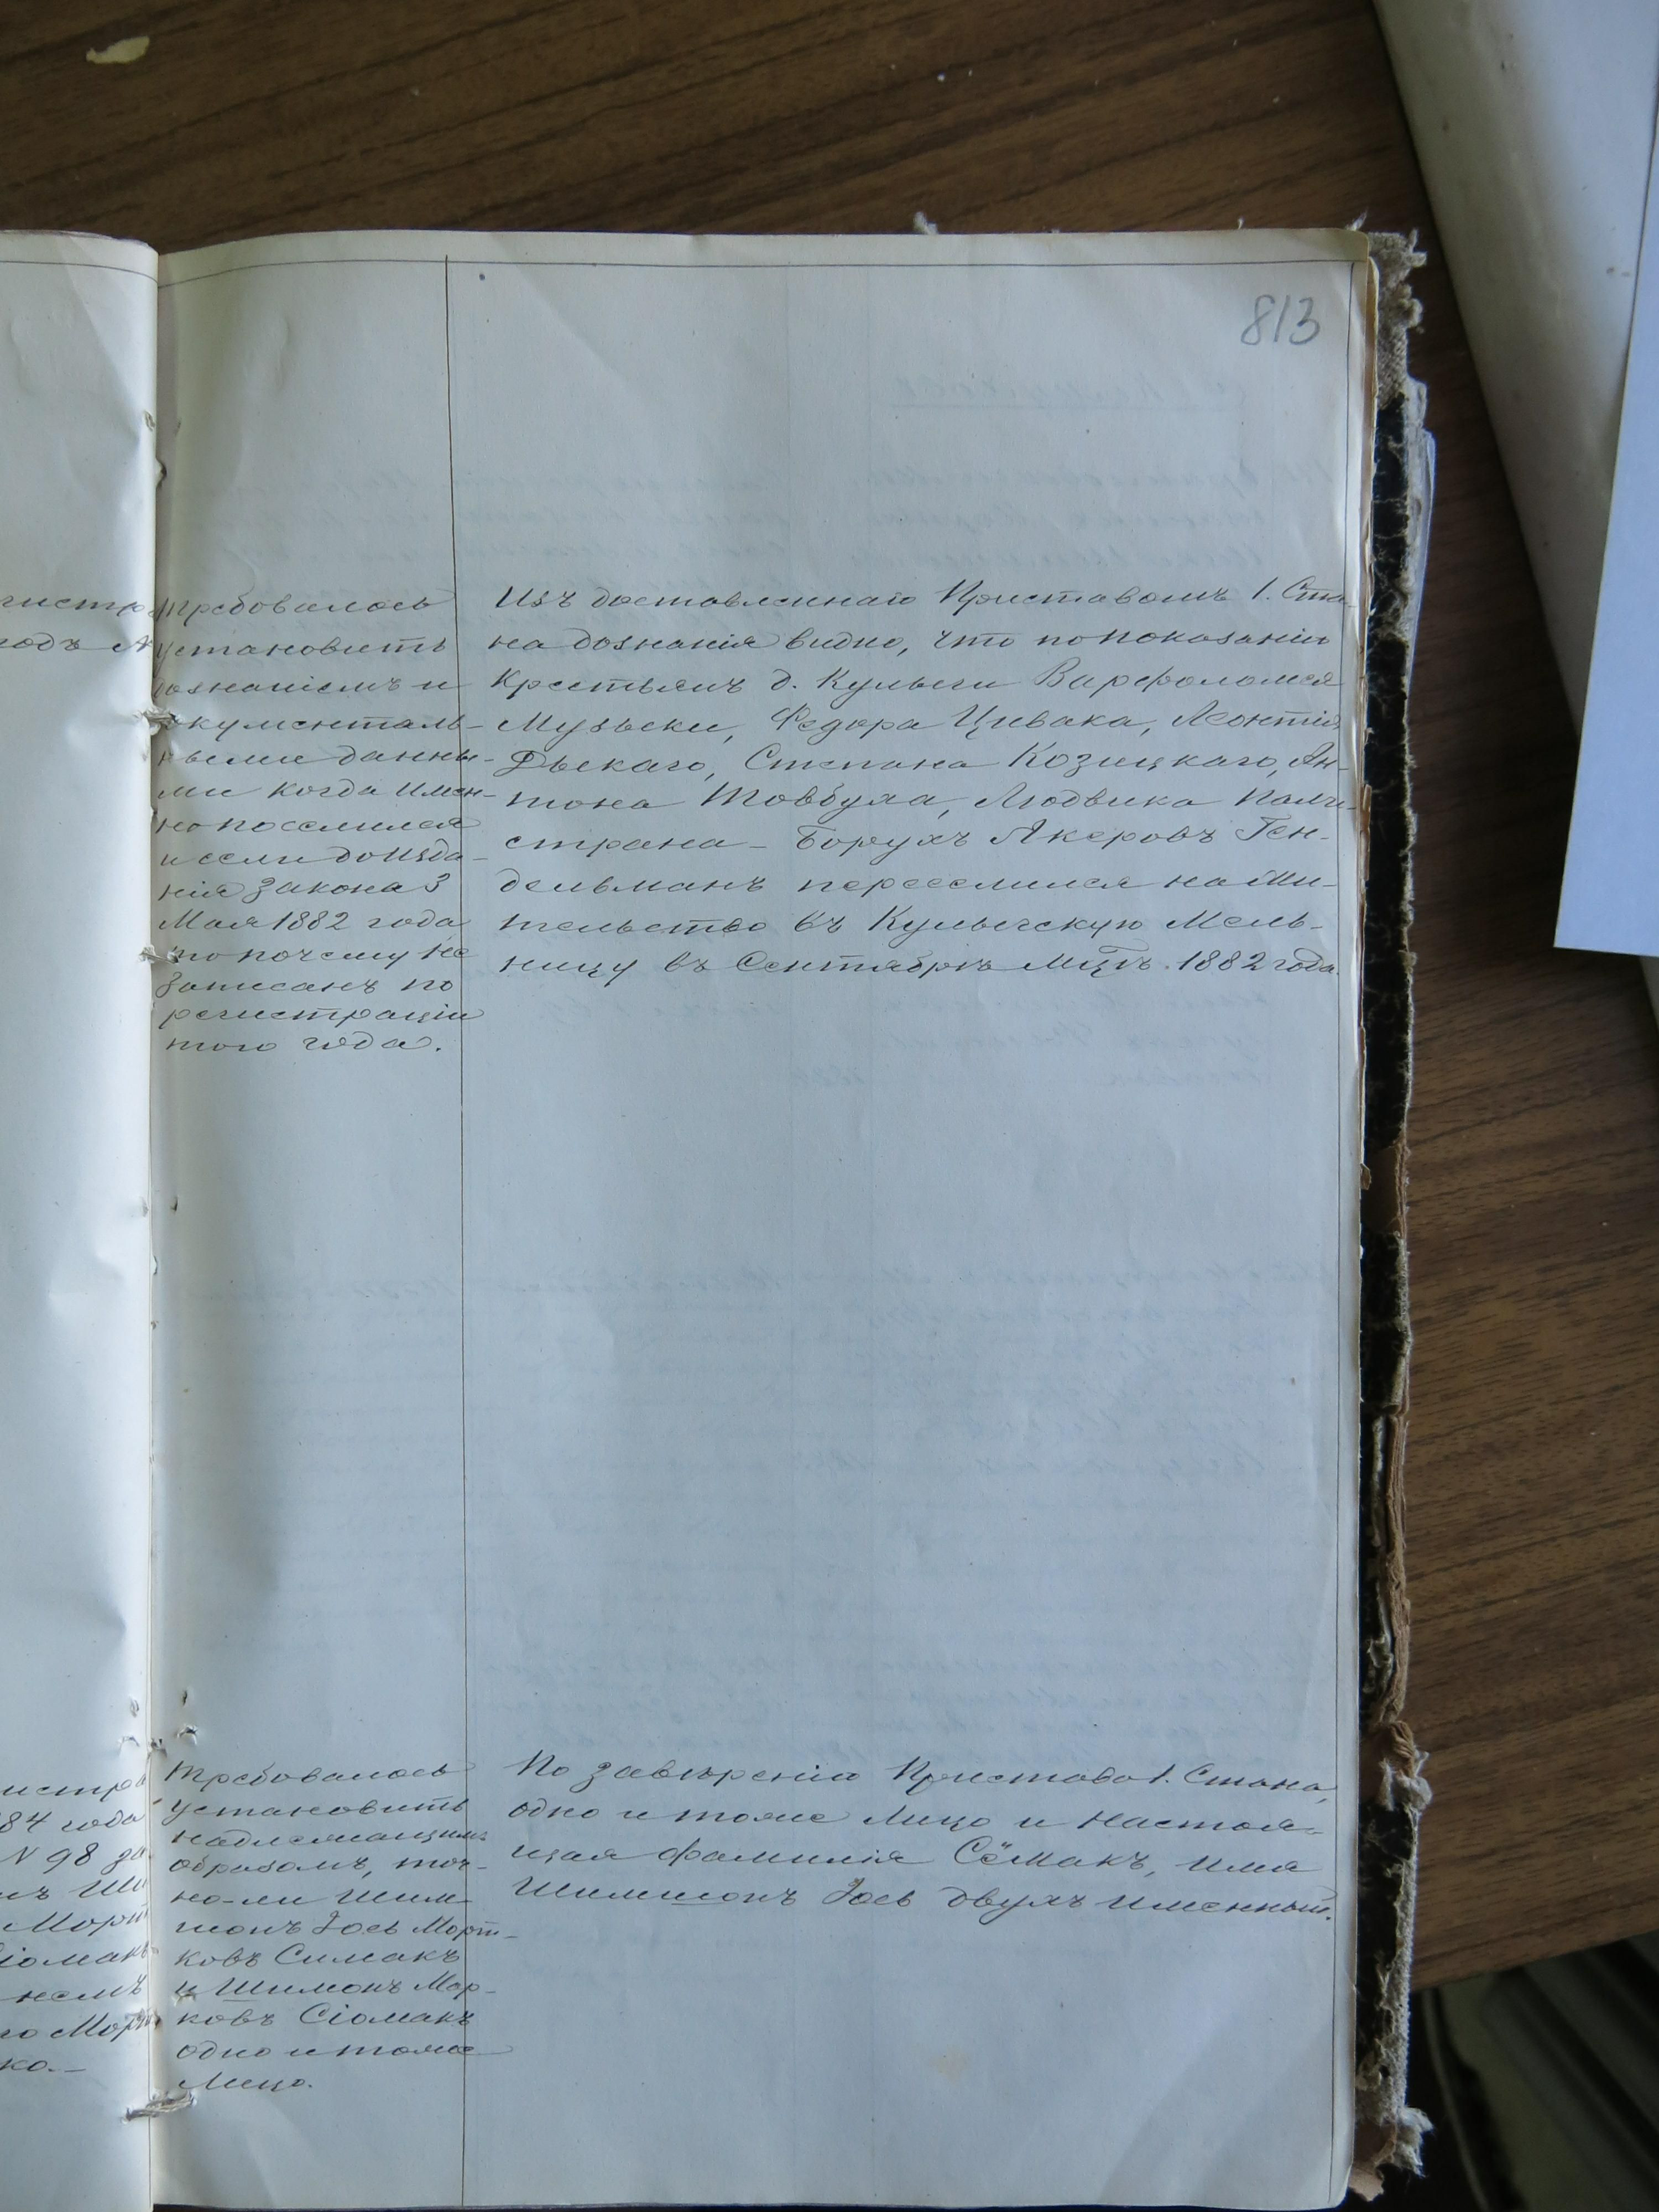 813
Требовалось
установить
дознаніемъ и
документаль-
ными данны-
ми когда имен-
но поселился
и если до изда-
нія закона 3
Мая 1882 года
то почему не
записанъ по
регистраціи
того года.
Изъ доставленнаго Приставомъ 1. Ста-
на дознанія видно, что по показанію
крестьянъ д. Кульги Варфоломея
Музыки, Федора Цивака, Леонтія
Дыкаго, Степана Козицкаго, Ан-
тона Товбуха, Людвика
страна - Борухъ Якеровъ Ген-
дельманъ переселился на жи-
тельство въ Кульгскую Мель-
ницу въ Сентябрѣ Мцѣ. 1882 года.
Требовалось
установить
надлежащимъ
образомъ, точ-
но-ли Шим-
шонъ Іось Морт-
ковъ Симакъ
и Шимонъ Мор-
ковъ Сіомакъ
одно и тоже
Лицо.
По завѣренію Пристава 1. Стана,
одно и тоже Лицо и настоя-
щая фамилія Сёмакъ, имя
Шимшонъ Іось двухъ именный.
истр
84 года
N 98 за
Морт
Сіомакъ
немъ
го Морт
ко.-